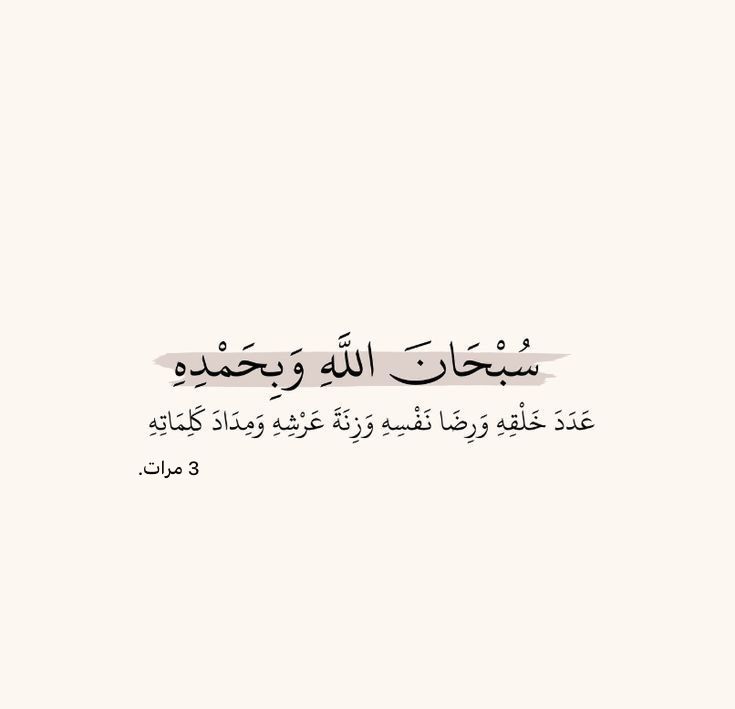 سُبْحَانَ اللَّهِ وَبِحَمْدِهِ
عَدَدَ خَلْقِهِ وَرِضَا نَفْسِهِ وَزِنَةَ عَرْشِهِ وَمِدَادَ كَلِمَاتِهِ
3 مرات.